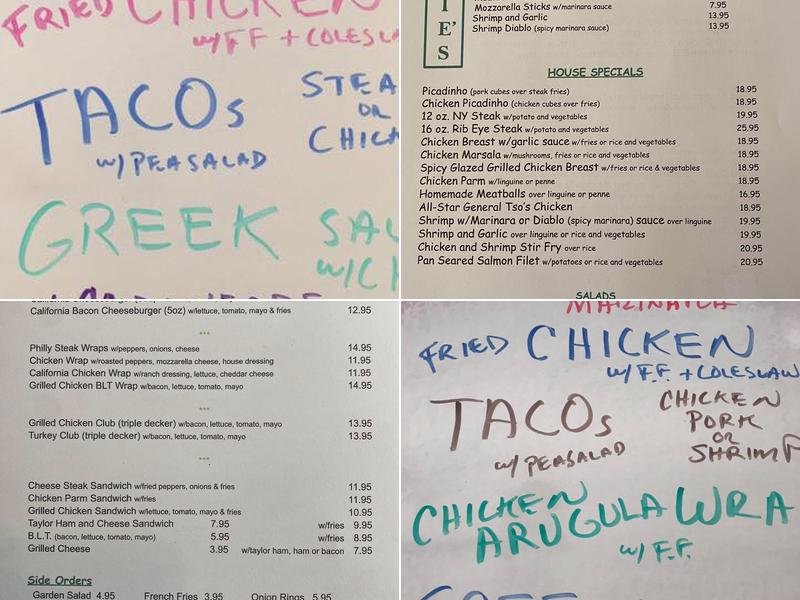 FRIED CHICKEN
w/FF + COLESLA
TACOs
w/ PEASALAD
STEA
OR
CHICK
GREEK SAL
w/CH
I
E'S
Mozzarella Sticks w/marinara sauce 7.95
Shrimp and Garlic 13.95
Shrimp Diablo (spicy marinara) 13.95
HOUSE SPECIALS
Picadinho (pork cubes over steak fries) 18.95
Chicken Picadinho (chicken cubes over fries) 18.95
12 oz. NY Steak w/potato and vegetables 19.95
16 oz. Rib Eye Steak w/potato and vegetables 25.95
Chicken Breast w/garlic sauce w/fries or rice and vegetables 18.95
Chicken Marsala w/mushrooms, fries or rice and vegetables 18.95
Spicy Glazed Grilled Chicken Breast w/fries or rice & vegetables 18.95
Chicken Parm w/linguine or penne 18.95
Homemade Meatballs over linguine or penne 16.95
All-Star General Tso's Chicken 18.95
Shrimp w/Marinara or Diablo (spicy marinara) sauce over linguine 19.95
Shrimp and Garlic over linguine or rice and vegetables 19.95
Chicken and Shrimp Stir Fry over rice 20.95
Pan Seared Salmon Filet w/potatoes or rice and vegetables 20.95
SALADS
California Bacon Cheeseburger (5oz) w/lettuce, tomato, mayo & fries 12.95
***
Philly Steak Wraps w/peppers, onions, cheese 14.95
Chicken Wrap w/roasted peppers, mozzarella cheese, house dressing 11.95
California Chicken Wrap w/ranch dressing, lettuce, cheddar cheese 11.95
Grilled Chicken BLT Wrap w/bacon, lettuce, tomato, mayo 14.95
***
Grilled Chicken Club (triple decker) w/bacon, lettuce, tomato, mayo 13.95
Turkey Club (triple decker) w/bacon, lettuce, tomato, mayo 13.95
***
Cheese Steak Sandwich w/fried peppers, onions & fries 11.95
Chicken Parm Sandwich w/fries 11.95
Grilled Chicken Sandwich w/lettuce, tomato, mayo & fries 10.95
Taylor Ham and Cheese Sandwich 7.95 w/fries 9.95
B.L.T. (bacon, lettuce, tomato, mayo) 5.95 w/fries 8.95
Grilled Cheese 3.95 w/taylor ham, ham or bacon 7.95
Side Orders
Garden Salad 4.95 French Fries 3.95 Onion Rings 5.95
FRIED CHICKEN
w/ F.F. + COLESLAW
TACOs
w/ PEASALAD
CHICKEN
PORK
OR
SHRIMP
CHICKEN
ARUGULA WRA
w/ F.F.